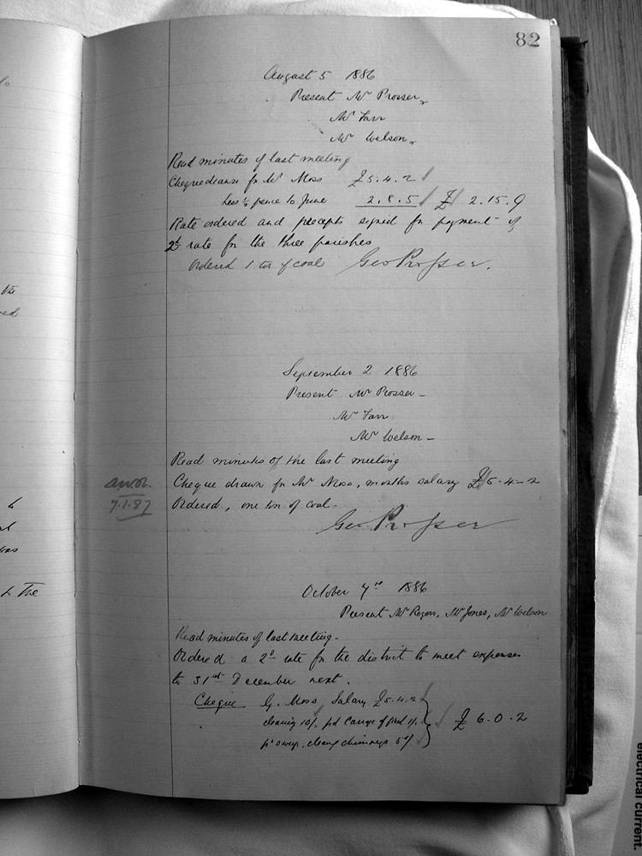 82
August 5 1886
Present Mr Prosser,
Mr Farr
Mr Welson.
Read minutes of last meeting
Cheque drawn for Mr Moss £5.4.2
less ½ pence to June 2.8.5 £ 2.15.9
Rate ordered and precepts signed for payment of
rate for the three parishes
Ordered 1 ton of coal Geo Prosser.
September 2 1886
Present Mr Prosser -
Mr Farr
Mr Welson -
Read minutes of the last meeting
Cheque drawn for Mr Moss, months salary £5-4-2
Ordered, one ton of coal.
7.1.87
Geo Prosser
October 7th 1886
Present Mr Jones, Mr Welson
Read minutes of last meeting.
Ordered a 2d rate for the district to meet expenses
to 31st December next.
Cheque G. Moss, Salary £5.4.2
cleaning 10/, pd
£ 6.0.2
pd sweep, chimneys 5/
the
the
electrical current.